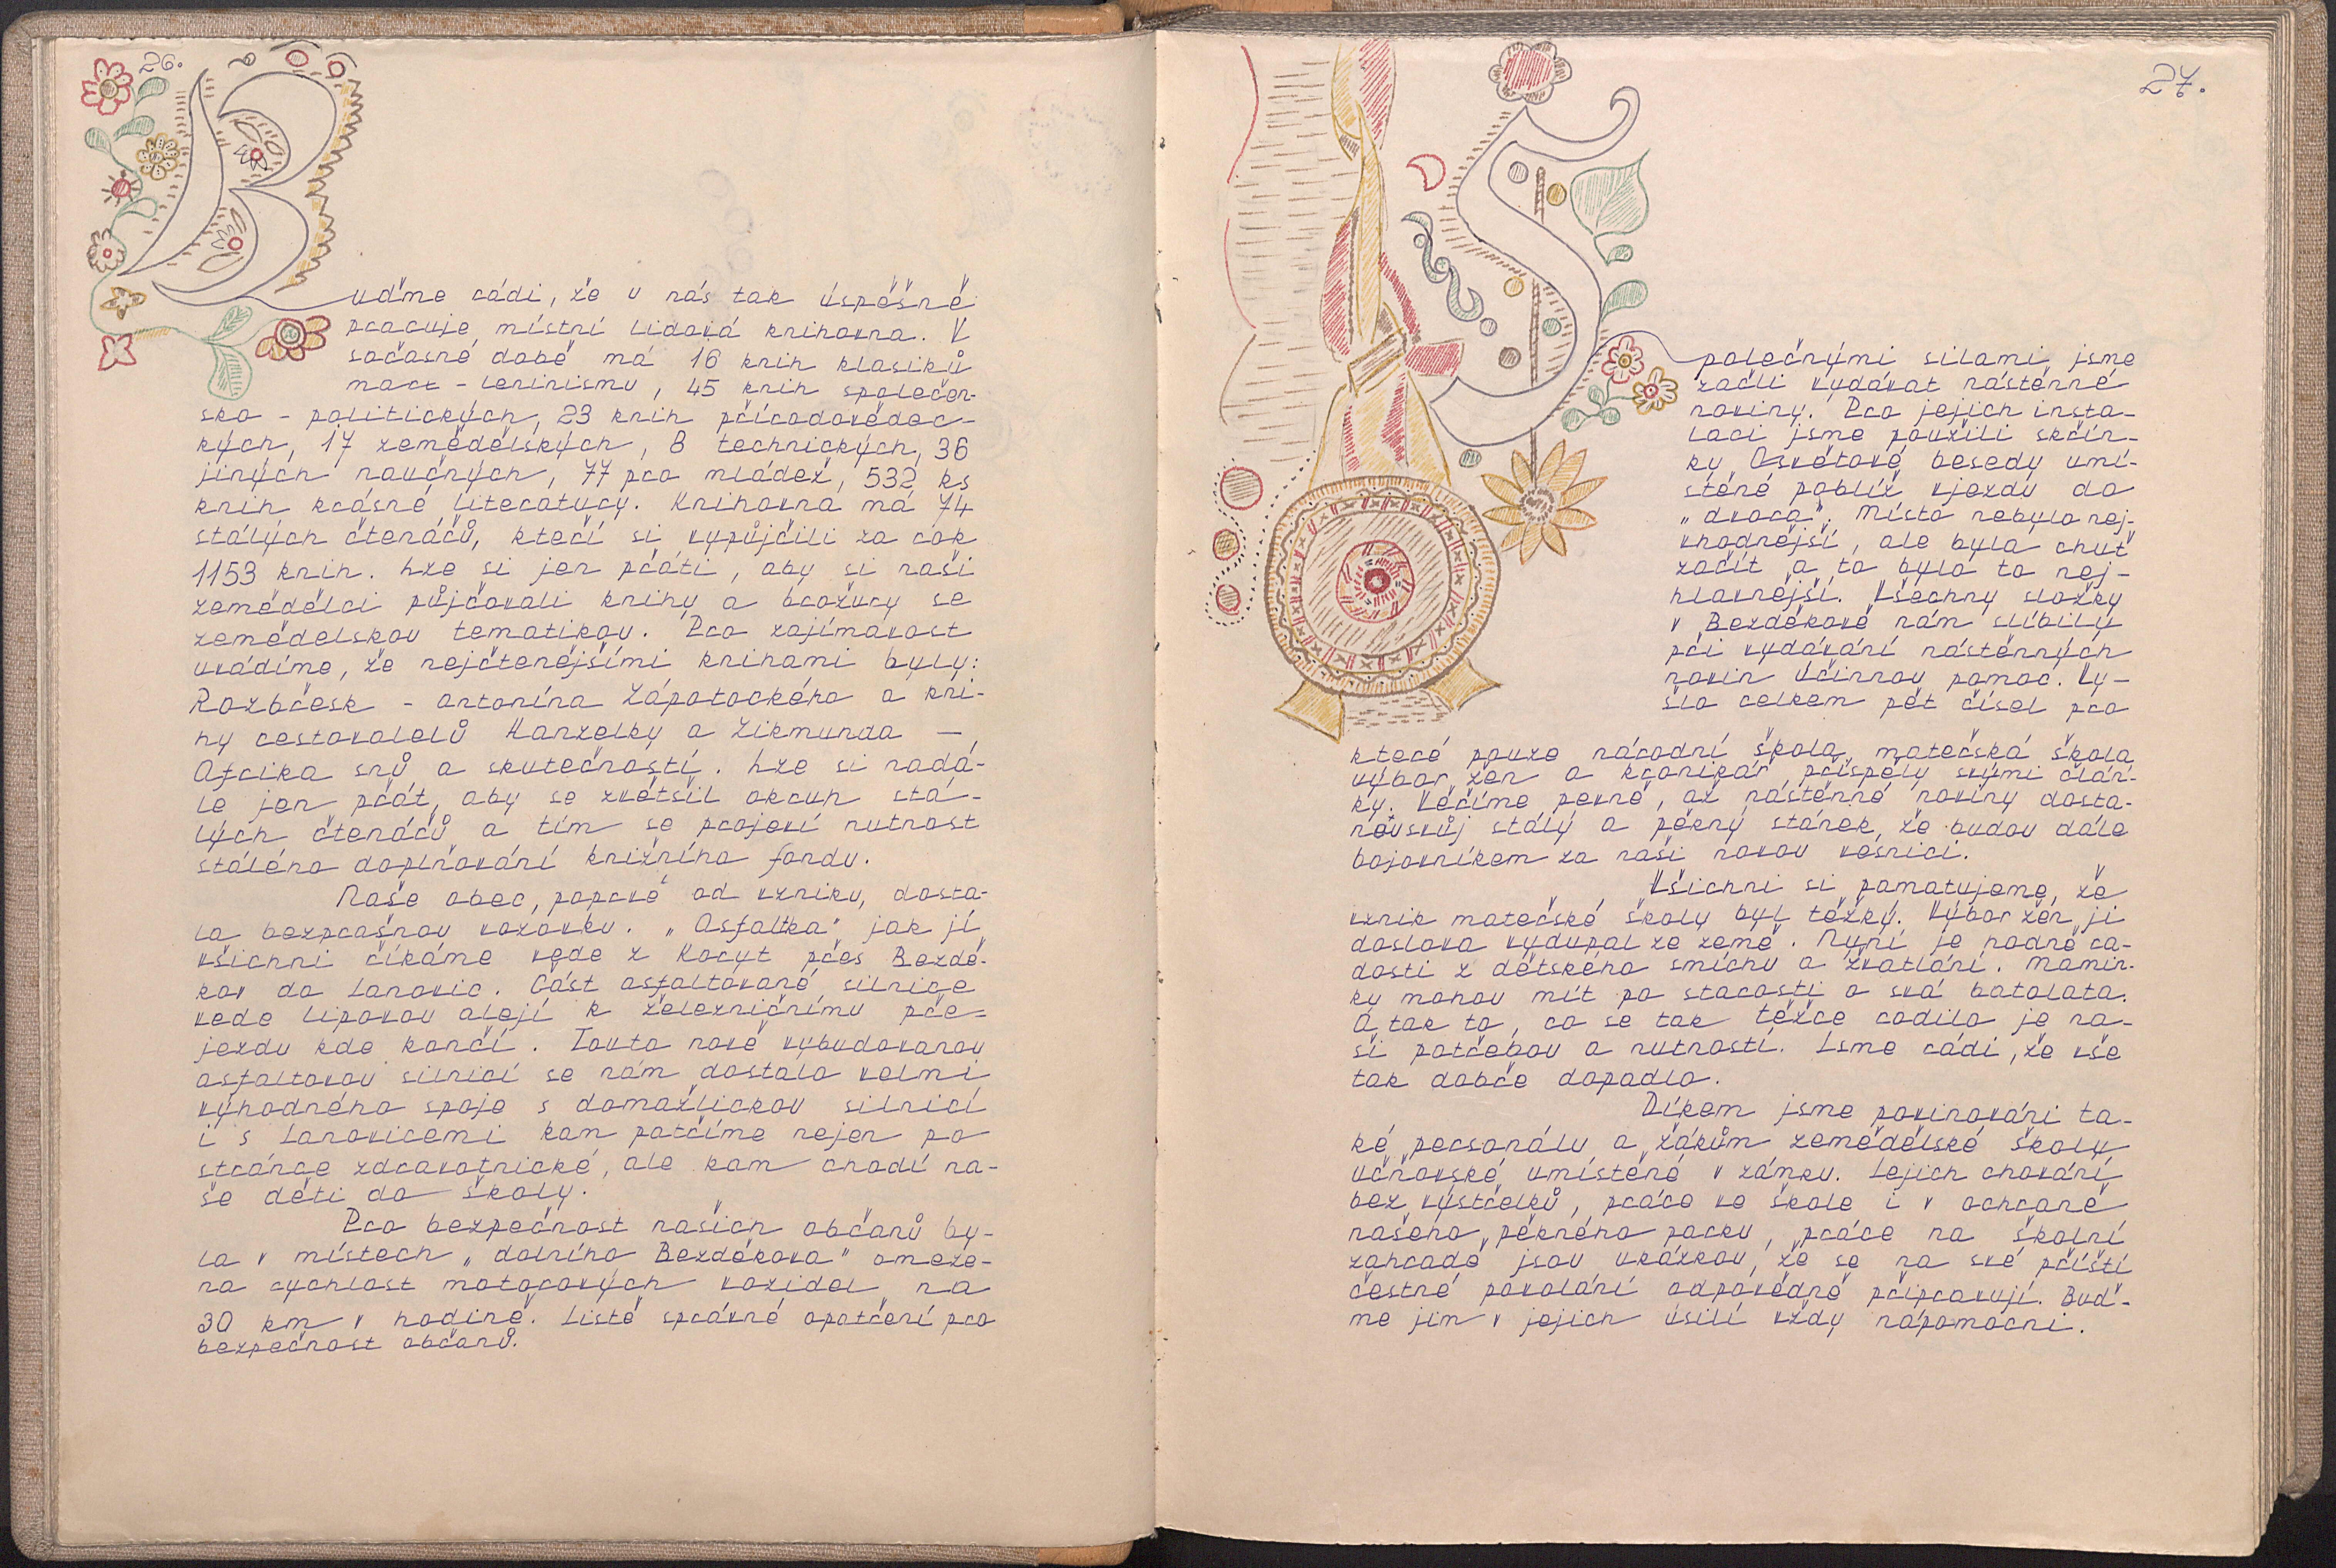 26.
Buďme rádi, že u nás tak úspěšně
pracuje místní lidová knihovna. V
sočasné době má 16 knih klasiků
marx - leninismu, 45 knih společen-
sko - politických, 23 knih přírodovědec-
kých, 17 zemědělských, 8 technických, 36
jiných naučných, 77 pro mládež, 532 ks
knih krásné literatury. Knihovna má 74
stálých čtenářů, kteří si vypůjčili za rok
1153 knih. Lze si jen přáti, aby si naši
zemědělci půjčovali knihy a brožury se
zemědelskou tematikou. Pro zajímavost
uvádíme, že nejčtenějšími knihami byly:
Rozbřesk - Antonína Zápotockého a kni-
hy cestovalelů Hanzelky a Zikmunda —
Afrika snů a skutečností. Lze si nadá-
le jen přát, aby se zvětšil okruh stá-
lých čtenářů a tím se projeví nutnost
stálého doplňování knižního fondu.
Naše obec, poprvé od vzniku, dosta-
la bezprašnou vozovku. „Asfaltka" jak jí
všichni říkáme vede z Koryt přes Bezdě-
kov do Janovic. Část asfaltované silnice
vede lipovou alejí k železničnímu pře-
jezdu kde končí. Touto nově vybudovanou
asfaltovou silnicí se nám dostalo velmi
výhodného spoje s domažlickou silnicí
i s Janovicemi kam patříme nejen po
stránce zdravotnické, ale kam chodí na-
še děti do školy.
Pro bezpečnost našich občanů by-
la v místech „dolního Bezděkova" omeze-
na rychlost motorových vozidel na
30 km v hodině. Jistě správné opatření pro
bezpečnost občanů.
27.
Společnými silami jsme
začli vydávat nástěnné
noviny. Pro jejich insta-
laci jsme použili skřín-
ky Osvětové besedy umí-
stěné poblíž vjezdu do
„dvora". Místo nebylo nej-
vhodnější, ale byla chuť
začít a to bylo to nej-
hlavnější. Všechny složky
v Bezděkově nám slíbily
při vydávání nástěnných
novin účinnou pomoc. Vy-
šlo celkem pět čísel pro
které pouze národní škola, mateřská škola,
výbor žen a kronikář přispěly svými člán-
ky. Věříme pevně, až nástěnné noviny dosta-
nou svůj stálý a pěkný stánek, že budou dále
bojovníkem za naši novou vesnici.
Všichni si pamatujeme, že
vznik mateřské školy byl těžký. Výbor žen ji
doslova vydupal ze země. Nyní je hodně ra-
dosti z dětského smíchu a žvatlání. Mamin-
ky mohou mít po starosti o svá batolata.
A tak to, co se tak těžce rodilo je na-
ší potřebou a nutností. Jsme rádi, že vše
tak dobře dopadlo.
Díkem jsme povinováni ta-
ké personálu a žákům zemědělské školy
učňovské umístěné v zámku. Jejich chování
bez výstřelků, práce ve škole i v ochraně
našeho pěkného parku, práce na školní
zahradě jsou ukázkou, že se na své příští
čestné povolání odpovědně připravují. Buď-
me jim v jejich úsilí vždy nápomocni.